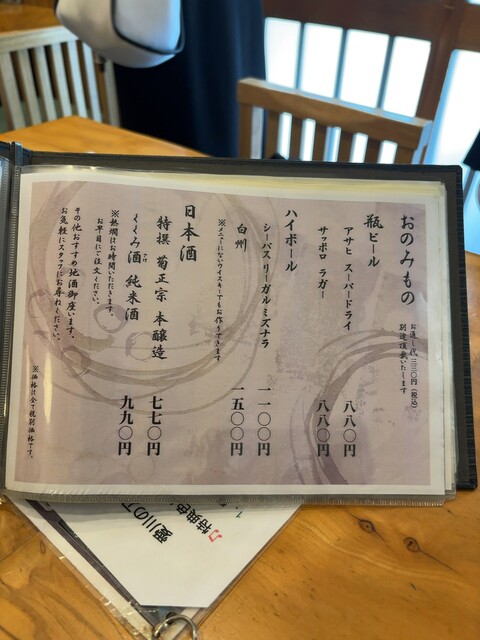 おのみもの
お通し代 三三〇円（税込）
別途頂戴いたします
瓶ビール
アサヒ スーパードライ 八八〇円
サッポロ ラガー 八八〇円
ハイボール
シーバスリーガルミズナラ 一一〇〇円
白州 一五〇〇円
※メニューにないウイスキーでもお作りできます
日本酒
特撰 菊正宗 本醸造 七七〇円
くくみ酒 純米酒 九九〇円
※熱燗はお時間いただきます。
お早目にご注文ください。
その他おすすめ地酒御座います。
お気軽にスタッフにお尋ねください。
※価格は全て税別価格です。